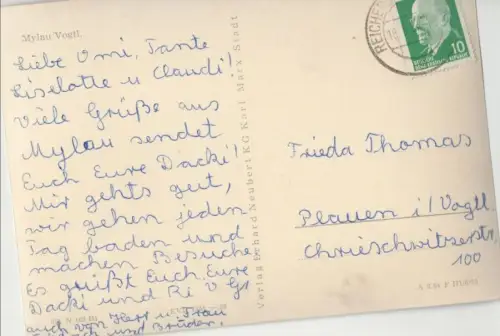 Mylau Vogtl.
Liebe Omi, Tante
Liselotte u Claudi!
Viele Grüße aus
Mylau sendet
Euch Eure Dacki!
Mir gehts gut,
wir gehen jeden
Tag baden und
machen Besuche
Es grüßt Euch Eure
Dacki und Ri v Gr
auch von Herr u Frau
und Brüder,
Verlag Erhard Neubert KG Karl-Marx-Stadt
REICHE
10
Frieda Thomas
Plauen i/Vogtl.
Chrieschwitzerstr.
100